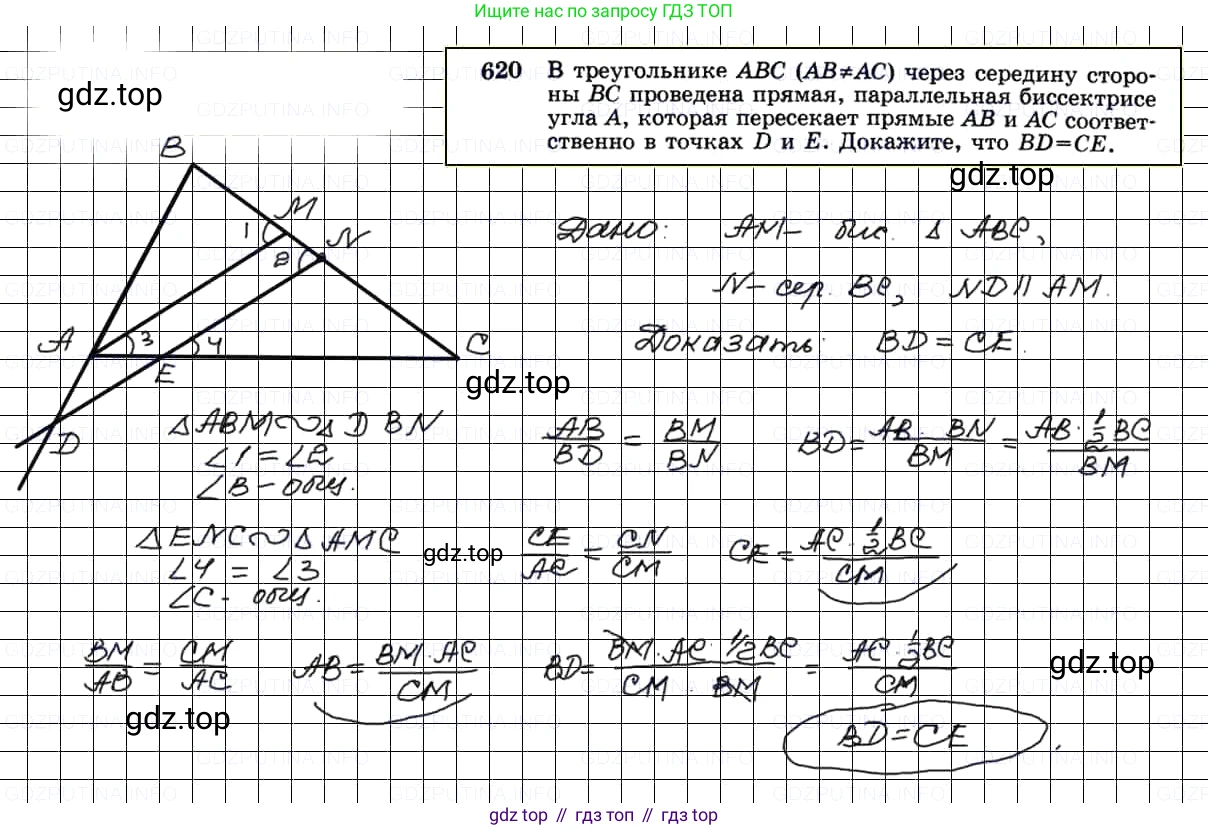 Ищите нас по запросу ГДЗ ТОП
620 В треугольнике ABC (AB≠AC) через середину сторо-
ны BC проведена прямая, параллельная биссектрисе
угла A, которая пересекает прямые AB и AC соответ-
ственно в точках D и E. Докажите, что BD=CE.
gdz.top
gdz.top
B
M
N
1
2
A
3
4
E
C
D
Дано: AM – бис. Δ ABC,
N – сер. BC, ND ∥ AM.
Доказать: BD = CE.
gdz.top
Δ ABM ∾ Δ D BN
∠1 = ∠2
∠B – общ.
AB/BD = BM/BN
BD = AB · BN/BM = AB · 1/2 BC/BM
Δ ENC ∾ Δ AMC
∠4 = ∠3
∠C - общ.
gdz.top
CE/AC = CN/CM
CE = AC · 1/2 BC/CM
BM/AB = CM/AC
AB = BM · AC/CM
BD = BM · AC · 1/2 BC/CM · BM = AC · 1/2 BC/CM
gdz.top
gdz.top
BD = CE.
gdz top // гдз топ // gdz top
GDZPUTINA.INFO